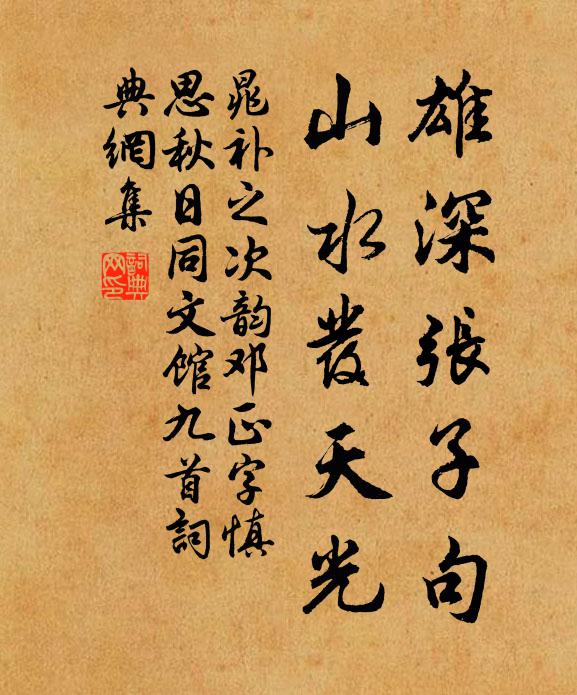 雄深張子句
山水發天光
晁补之次韵邓正字慎
思秋日同文館九首詞
典網集
詞典
网印